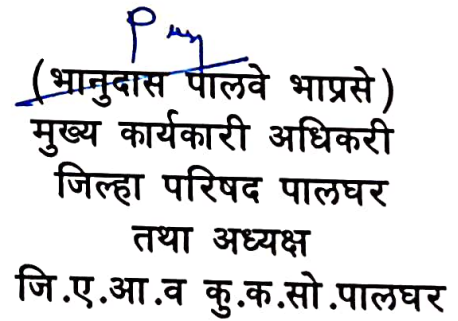 (भानुदास पालवे भाप्रसे)
मुख्य कार्यकारी अधिकरी
जिल्हा परिषद पालघर
तथा अध्यक्ष
जि.ए.आ.व कु.क.सो.पालघर